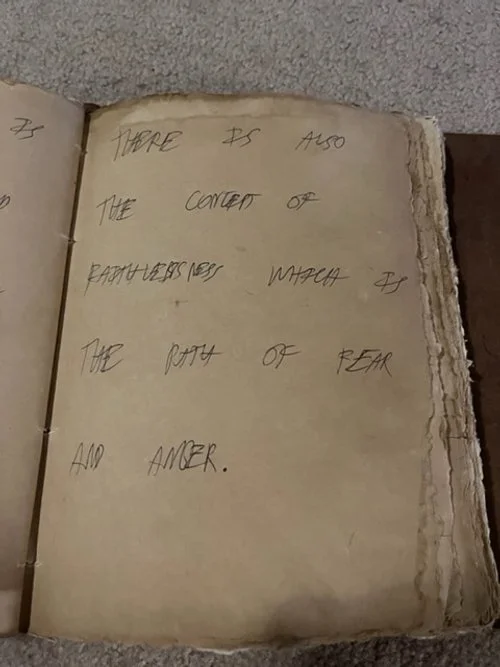 IS
THERE IS ALSO
THE OF
PATHLESSNESS WHICH IS
THE PATH OF FEAR
AND ANGER.